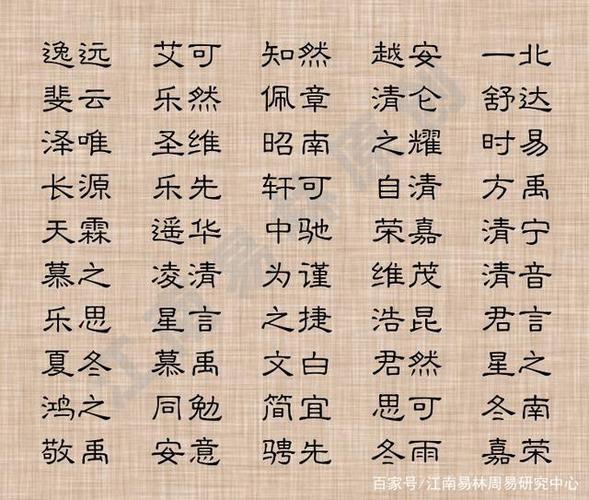 逸远 艾可 知然 越安 一北
斐云 乐然 佩章 清仑 舒达
泽唯 圣维 昭南 之耀 时易
长源 乐先 轩可 自清 方禹
天霖 遥华 中驰 荣嘉 清宁
慕之 凌清 为谨 维茂 清音
乐思 星言 之捷 浩昆 君言
夏冬 慕禹 文白 君然 星之
鸿之 同勉 简宜 思可 冬南
敬禹 安意 骋先 冬雨 嘉荣
江南易林原司
百家号/江南易林周易研究中心